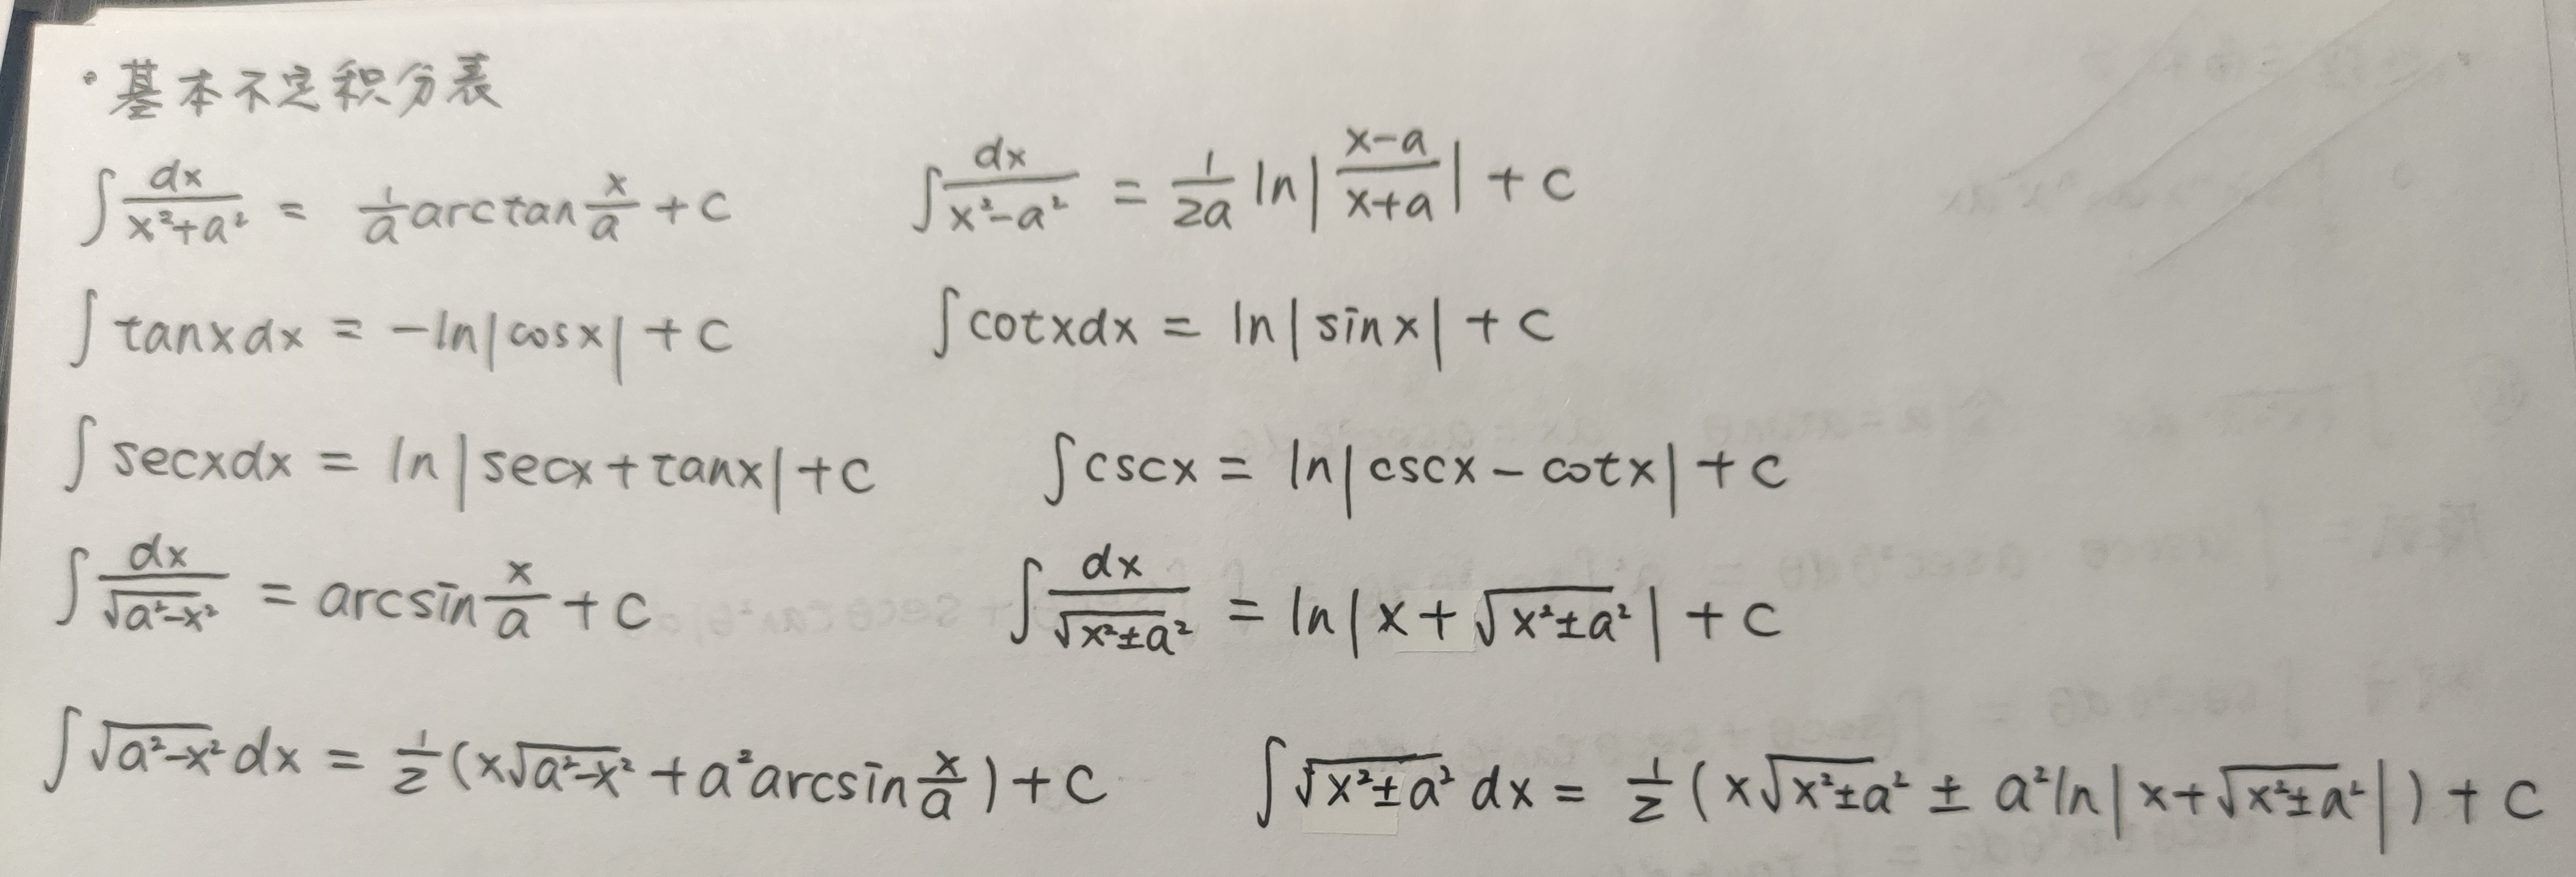 · 基本不定积分表
∫ dx/(x²+a²) = 1/a arctan x/a + C    ∫ dx/(x²-a²) = 1/2a ln|(x-a)/(x+a)| + C
∫ tanxdx = -ln|cosx| + C    ∫ cotxdx = ln|sinx| + C
∫ secxdx = ln|secx+tanx| + C    ∫ cscx = ln|cscx - cotx| + C
∫ dx/√(a²-x²) = arcsin x/a + C    ∫ dx/√(x²±a²) = ln|x+√(x²±a²)| + C
∫ √(a²-x²) dx = 1/2 (x√(a²-x²) + a² arcsin x/a) + C    ∫ √(x²±a²) dx = 1/2 (x√(x²±a²) ± a² ln|x+√(x²±a²)|) + C